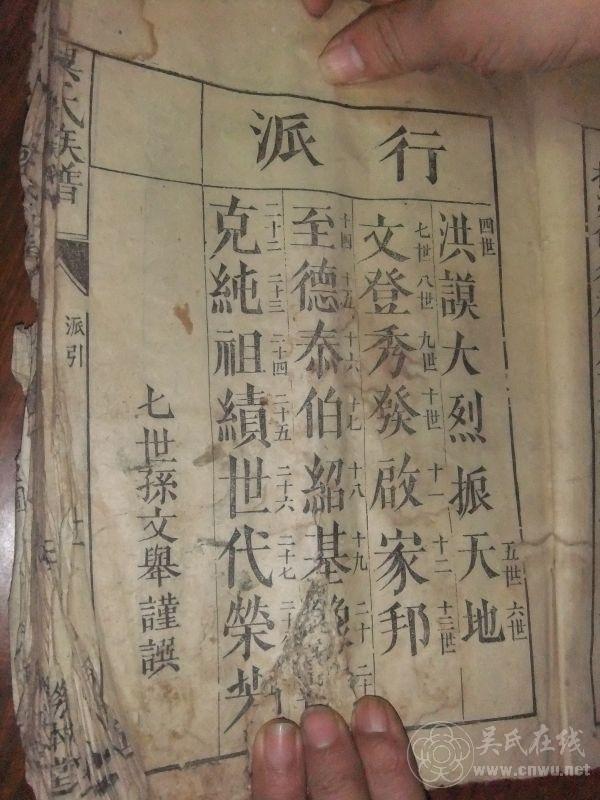 行派
四世 五世 六世
洪謨大烈振天地
七世 八世 九世 十世 十一 十二 十三世
文登秀發啟家邦
十四 十五 十六 十七 十八 十九 二十
至德泰伯紹基
二十二 二十三 二十四 二十五 二十六 二十七
克純祖績世代榮
七世孫文舉謹譔
氏族譜
派引
吴氏在线
www.cnwu.net